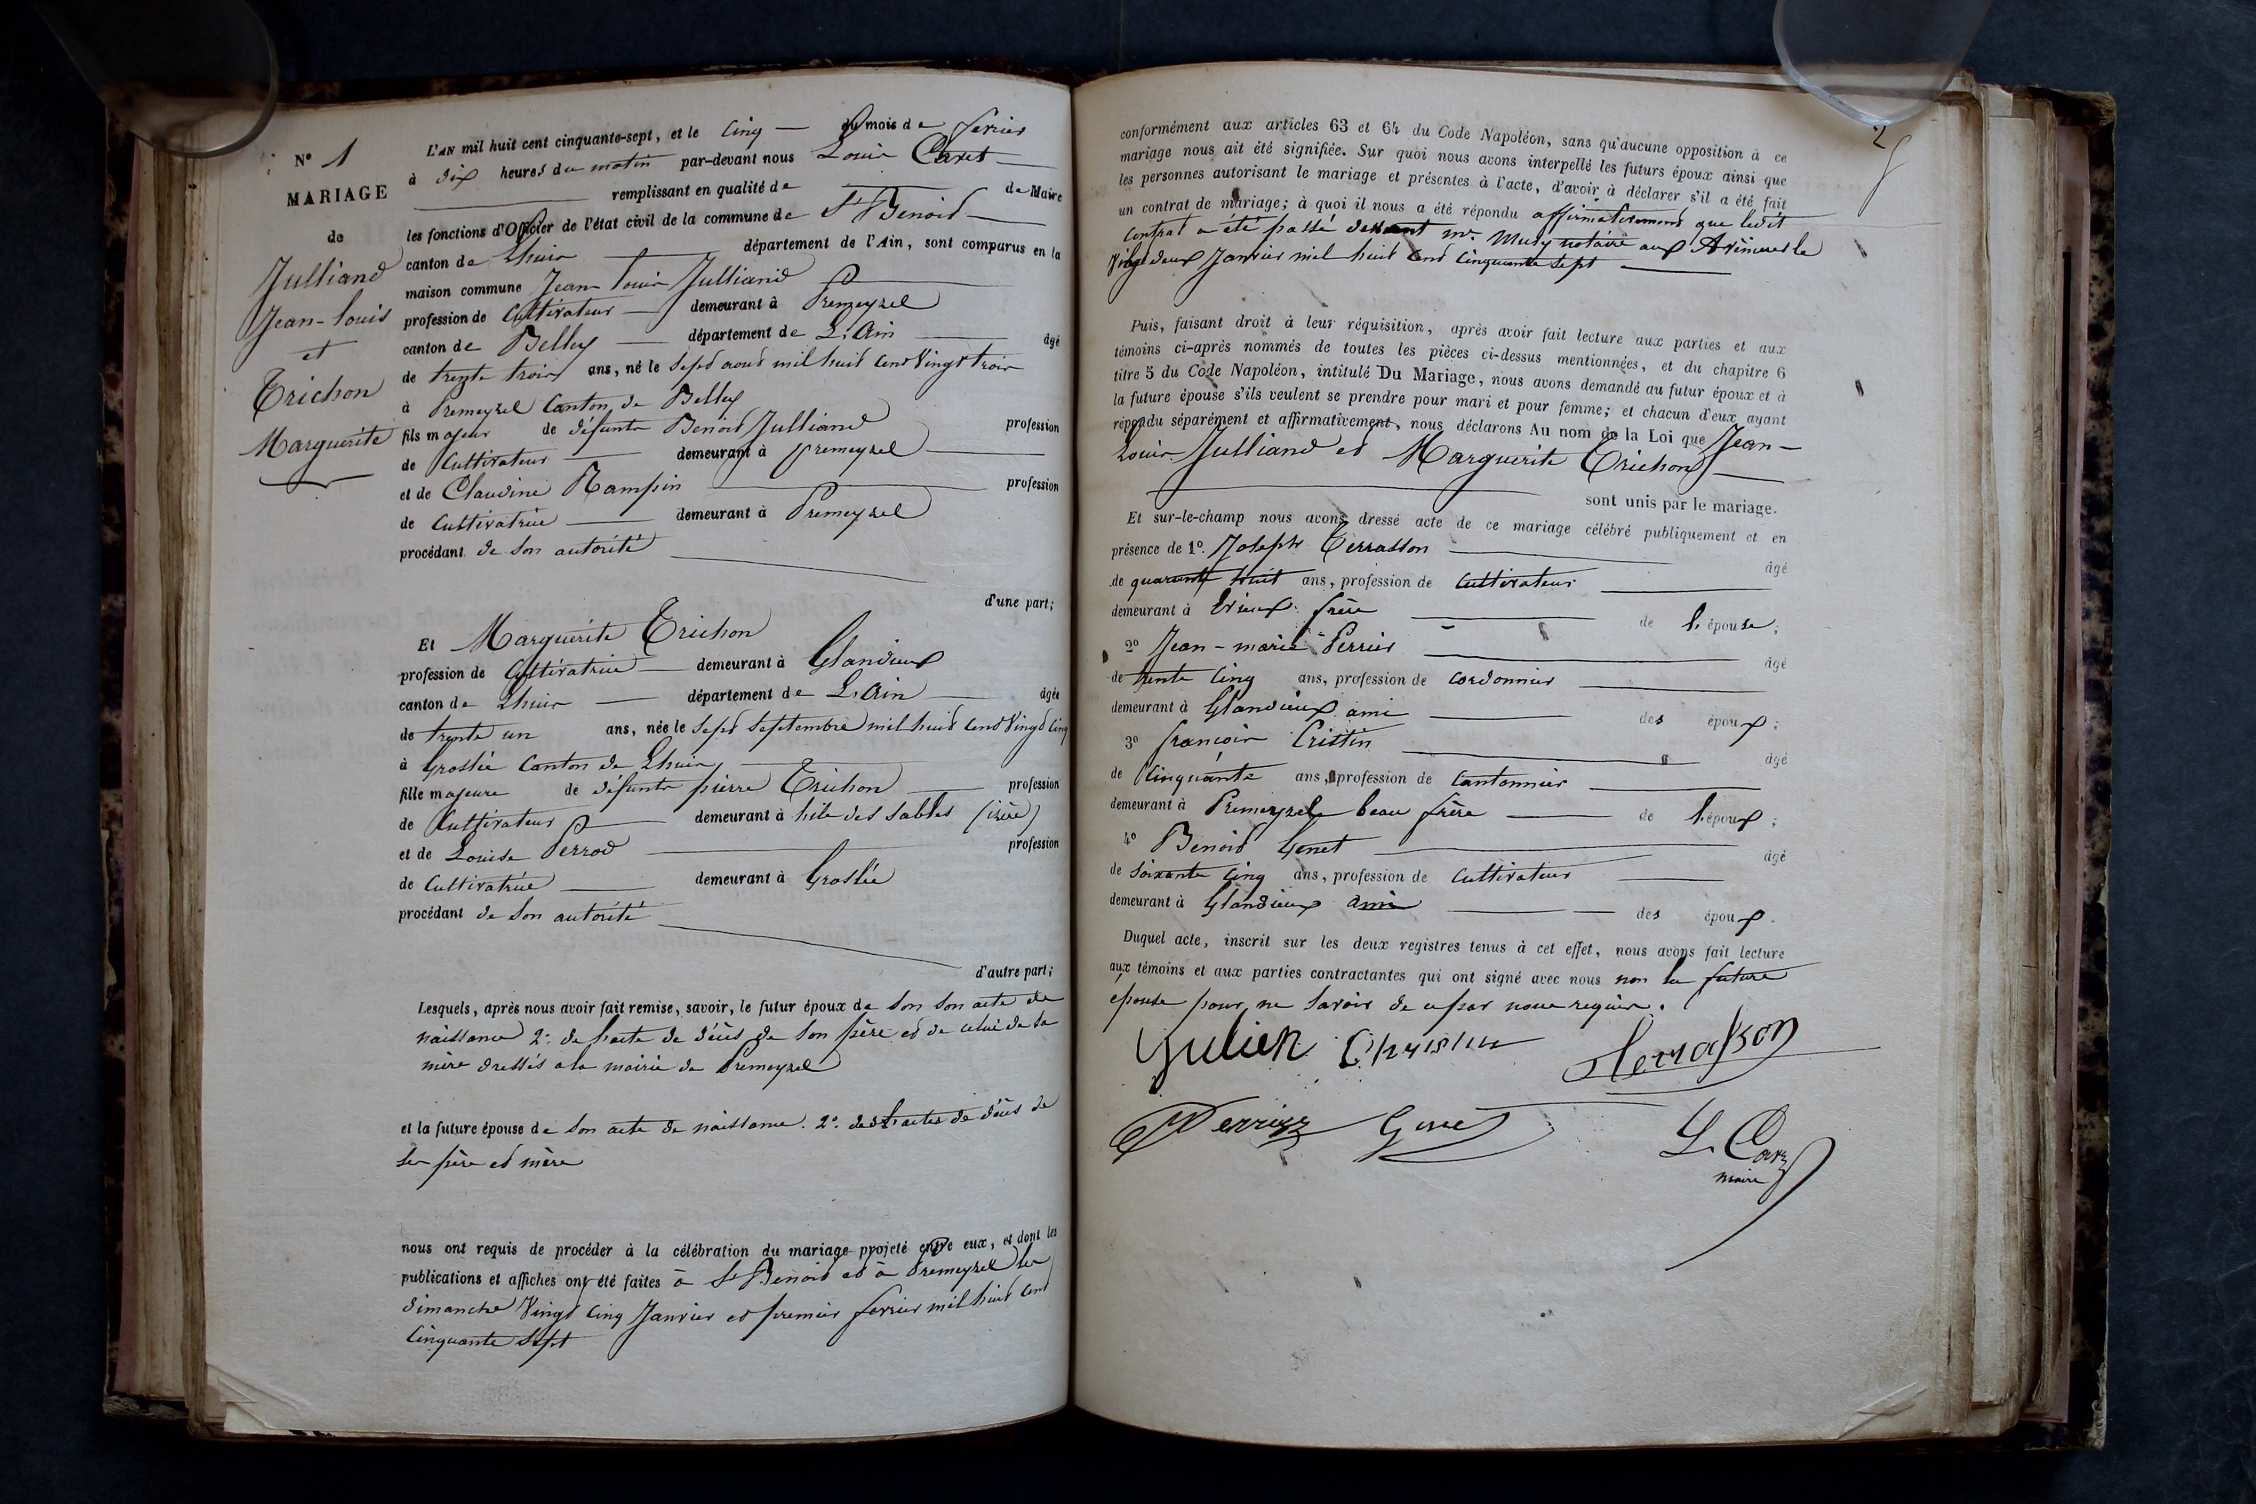 N° 1
MARIAGE
de
Julliand
Jean-louis
et
Trichon
Marguerite
L'AN mil huit cent cinquante-sept, et le cinq du mois de fevrier
à dix heures du matin par-devant nous Louis Caret
remplissant en qualité de de Maire
les fonctions d'Officier de l'état civil de la commune de St Benoid
canton de Lhuis département de l'Ain, sont comparus en la
maison commune Jean louis Julliand
profession de Cultivateur demeurant à Premeyzel
canton de Belley département de L'Ain âgé
de trente trois ans, né le Sept aout mil huit cent Vingt trois
à Premeyzel Canton de Belley
fils majeur de défunts Benoid Julliand profession
de Cultivateur demeurant à premeyzel
et de Claudine Rampin profession
de Cultivatrice demeurant à Premeyzel
procédant de son autorité
d'une part;
Et Marguerite Trichon
profession de Cultivatrice demeurant à Glandieux
canton de Lhuis département de L'Ain âgée
de trente un ans, née le Sept Septembre mil huit cent Vingt Cinq
à Groslée Canton de Lhuis
fille majeure de défunts pierre Trichon profession
de Cultivateur demeurant à des Sables (isère)
et de Louise Perrod profession
de Cultivatrice demeurant à Groslée
procédant de son autorité
d'autre part;
Lesquels, après nous avoir fait remise, savoir, le futur époux de son son acte de
naissance 2° de l'acte de décès de son père et de celui de sa
mère dressés a la mairie de Premeyzel
et la future épouse de son acte de naissance. 2° des actes de décès de
ses père et mère
nous ont requis de procéder à la célébration du mariage projeté entre eux, et dont les
publications et affiches ont été faites à St Benoid et à Premeyzel les
dimanche Vingt Cinq Janvier et premier fevrier mil huit cent
Cinquante Sept
2
conformément aux articles 63 et 64 du Code Napoléon, sans qu'aucune opposition à ce
mariage nous ait été signifiée. Sur quoi nous avons interpellé les futurs époux ainsi que
les personnes autorisant le mariage et présentes à l'acte, d'avoir à déclarer s'il a été fait
un contrat de mariage; à quoi il nous a été répondu affirmativement que ledit
Contrat a été passé devant mr. notaire aux Avenieres le
Vingt deux Janvier mil huit Cent Cinquante Sept
Puis, faisant droit à leur réquisition, après avoir fait lecture aux parties et aux
témoins ci-après nommés de toutes les pièces ci-dessus mentionnées, et du chapitre 6
titre 5 du Code Napoléon, intitulé Du Mariage, nous avons demandé au futur époux et à
la future épouse s'ils veulent se prendre pour mari et pour femme; et chacun d'eux ayant
répondu séparément et affirmativement, nous déclarons Au nom de la Loi que Jean-
Louis Julliand et Marguerite Trichon
sont unis par le mariage.
Et sur-le-champ nous avons dressé acte de ce mariage célébré publiquement et en
présence de 1°. Joseph Terrasson âgé
de quarante huit ans, profession de Cultivateur
demeurant à frère de l'épouse;
2° Jean-marie Perrier âgé
de trente Cinq ans, profession de Cordonnier
demeurant à Glandieux ami des époux;
3° françois Cristin âgé
de Cinquante ans, profession de Cantonnier
demeurant à Premeyzel beau frère de l'époux;
4° Benoid Genet âgé
de Soixante Cinq ans, profession de Cultivateur
demeurant à Glandieux ami des époux.
Duquel acte, inscrit sur les deux registres tenus à cet effet, nous avons fait lecture
aux témoins et aux parties contractantes qui ont signé avec nous non la future
épouse pour ne Savoir de ce par nous requise.
Julien Christin Terrasson
Perrier Genet L. Caret
maire